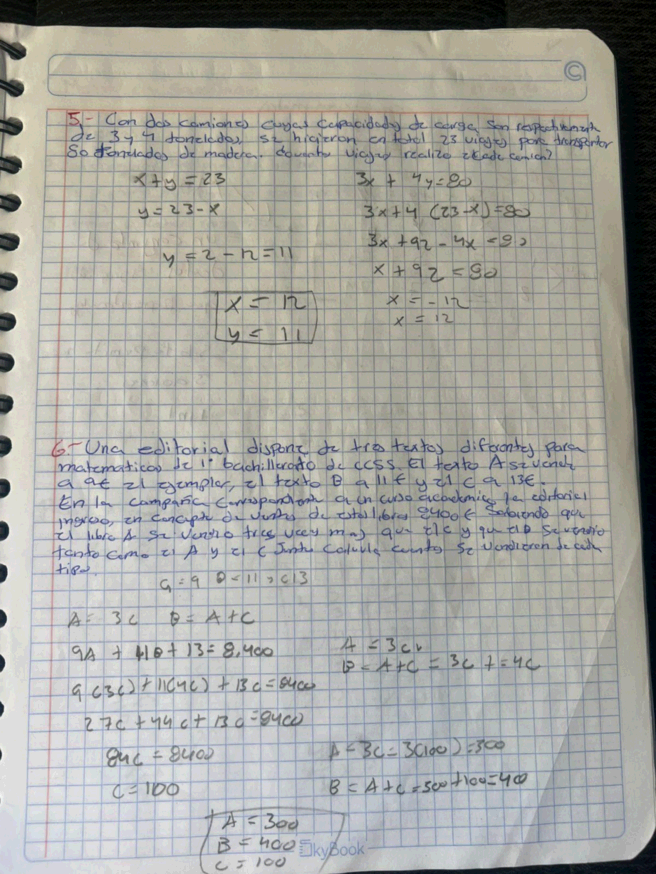 5.- Con dos camiones cuyas capacidades de carga son respectivamente
de 3 y 4 toneladas, se hicieron en total 23 viajes para transportar
80 toneladas de madera. cuantos viajes realizo cada camion?
x + y = 23
3x + 4y = 80
y = 23 - x
3x + 4 (23 - x) = 80
3x + 92 - 4x = 80
y = 2 - 12 = 11
x + 92 = 80
x = 12
x = - 12
y = 11
x = 12
6.- Una editorial dispone de tres textos diferentes para
matematicas de 1º bachillerato de CCSS. El texto A se vende
a 9€ el ejemplar, el texto B a 11€ y el C a 13€.
En la campaña correspondiente a un curso academico la editorial
ingreso, en concepto de ventas de estos libros 8400€ Sabiendo que
el libro A se vendio tres veces mas que el C y que el B se vendio
tanto como el A y el C juntos Calcula cuantos se vendieron de cada
tipo.
a = 9 B = 11 , c 13
A = 3c B = A + C
9A + 11B + 13 = 8,400
A = 3c
B = A + C = 3c + = 4c
9 (3c) + 11 (4c) + 13c = 8400
27c + 44c + 13c = 8400
84c = 8400
A = 3c = 3(100) = 300
c = 100
B = A + C = 300 + 100 = 400
A = 300
B = 400
C = 100
SkyBook